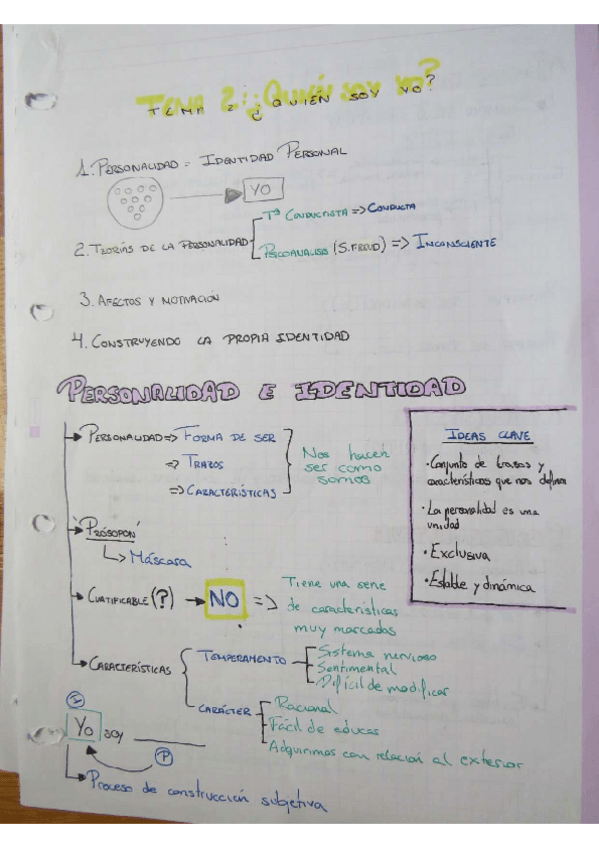 TEMA 2: ¿QUIÉN SOY YO?
1. PERSONALIDAD = IDENTIDAD PERSONAL
YO
2. TEORÍAS DE LA PERSONALIDAD
Tª CONDUCTISTA => CONDUCTA
PSICOANÁLISIS (S.FREUD) => INCONSCIENTE
3. AFECTOS Y MOTIVACIÓN
4. CONSTRUYENDO LA PROPIA IDENTIDAD
PERSONALIDAD E IDENTIDAD
PERSONALIDAD => FORMA DE SER
=> TRAZOS
=> CARACTERÍSTICAS
Nos hacen
ser como
somos
'PRÓSOPON'
Máscara
CUATIFICABLE (?) → NO =>
Tiene una serie
de características
muy marcadas
CARACTERÍSTICAS
TEMPERAMENTO
Sistema nervioso
Sentimental
Difícil de modificar
CARÁCTER
Racional
Fácil de educar
Adquirimos con relación al exterior
I
Yo soy
P
Proceso de construcción subjetiva
IDEAS CLAVE
· Conjunto de trazos y
características que nos definen
· La personalidad es una
unidad
· Exclusiva
· Estable y dinámica